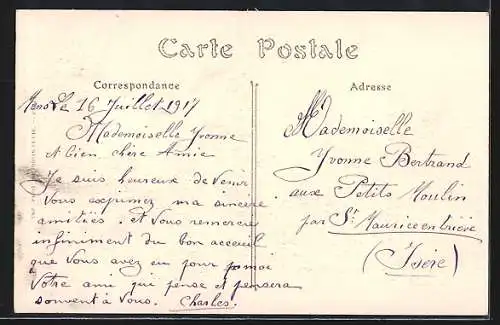 Carte Postale
Correspondance
Le 16 Juillet 1917
Mademoiselle Yvonne
et bien chère Amie
Je suis heureux de venir
vous exprimez ma sincère
amitiés. et vous remercier
infiniment du bon acceuil
que vous avez eu pour moi
Votre ami qui pense et pensera
souvent à vous. Charles.
Adresse
Mademoiselle
Yvonne Bertrand
aux Petits Moulin
par St Maurice en trièves
(Isère)